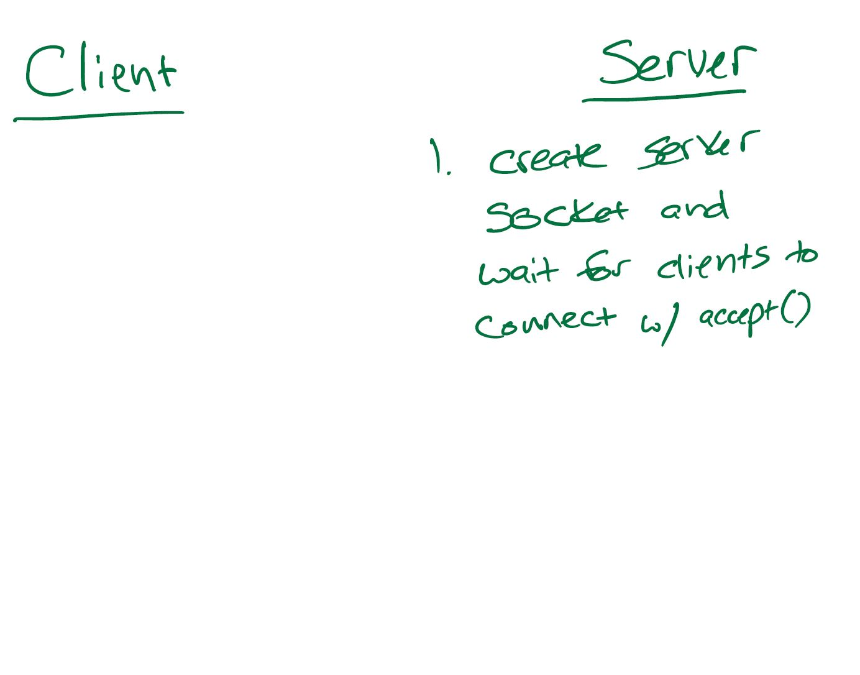 Client
Server
1. create server
socket and
wait for clients to
connect w/ accept()